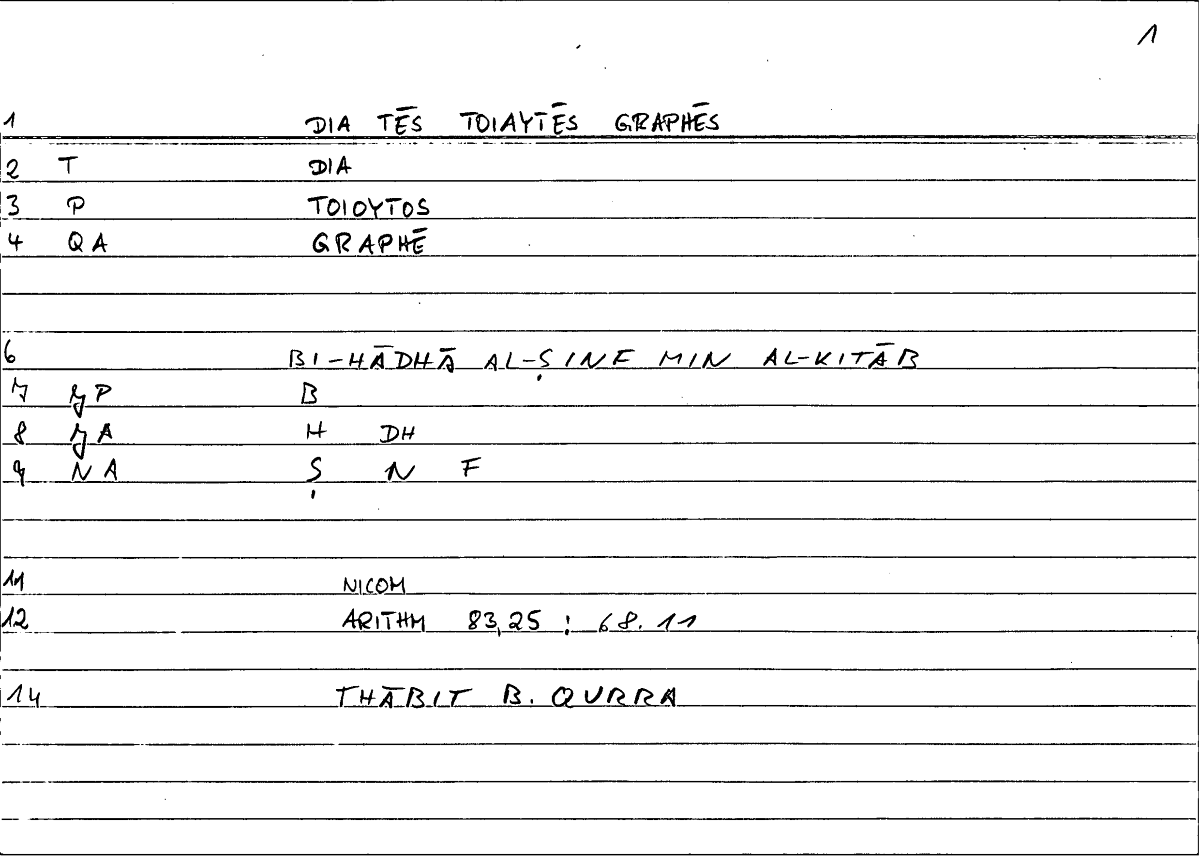 1
1 DIA TĒS TOIAYTĒS GRAPHĒS
2 T DIA
3 P TOIOYTOS
4 QA GRAPHĒ
6 BI-HĀDHĀ AL-ṢINF MIN AL-KITĀB
7 P B
8 A H DH
9 NA Ṣ N F
11 NICOM
12 ARITHM 83,25 : 68.11
14 THĀBIT B. QURRA